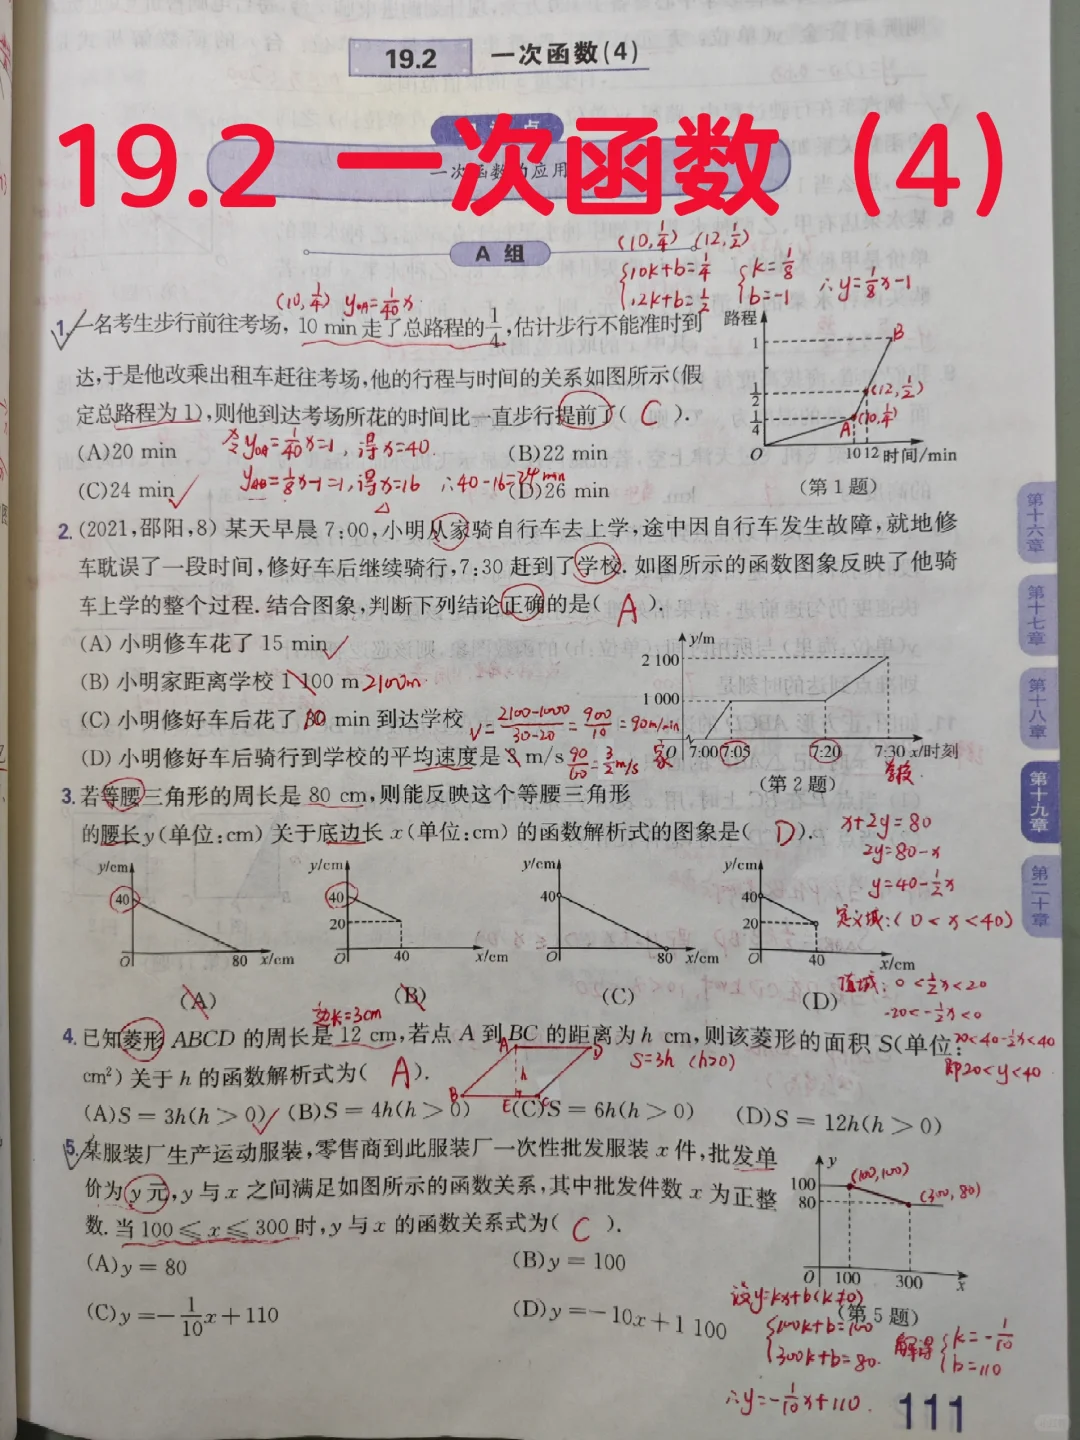 19.2 一次函数(4)
19.2 一次函数（4）
一次函数的应用
A 组
(10,1/4) (12,1/2)
{10k+b=1/4 {k=1/8 ∴y=1/8x-1
12k+b=1/2 b=-1
(10,1/4) yOA=1/40x
1. 一名考生步行前往考场, 10 min 走了总路程的1/4,估计步行不能准时到
达,于是他改乘出租车赶往考场,他的行程与时间的关系如图所示(假
定总路程为 1),则他到达考场所花的时间比一直步行提前了( C ).
(A)20 min (B)22 min
令yOA=1/40x=1,得x=40.
(C)24 min (D)26 min
yAB=1/8x-1=1,得x=16 ∴40-16=24min
路程
1
1/2
1/4
O 10 12 时间/min
B
(12,1/2)
A (10,1/4)
(第 1 题)
2. (2021,邵阳,8) 某天早晨 7:00,小明从家骑自行车去上学,途中因自行车发生故障,就地修
车耽误了一段时间,修好车后继续骑行,7:30 赶到了学校. 如图所示的函数图象反映了他骑
车上学的整个过程.结合图象,判断下列结论正确的是( A ).
(A) 小明修车花了 15 min
(B) 小明家距离学校 1 100 m 2100m.
(C) 小明修好车后花了 30 min 到达学校 v=2100-1000/30-20=900/10=90m/min
(D) 小明修好车后骑行到学校的平均速度是 3 m/s 90/60=3/2m/s
y/m
2 100
1 000
O 7:00 7:05 7:20 7:30 x/时刻
家 学校
(第 2 题)
3. 若等腰三角形的周长是 80 cm,则能反映这个等腰三角形
的腰长 y(单位:cm) 关于底边长 x(单位:cm) 的函数解析式的图象是( D ).
x+2y=80
2y=80-x
y=40-1/2x
定义域:(0<x<40)
值域:0<1/2x<20
-20<-1/2x<0
20<40-1/2x<40
即20<y<40.
y/cm y/cm y/cm y/cm
40 40 40 40
20 20
O 80 x/cm O 40 x/cm O 80 x/cm O 40 x/cm
(A) (B) (C) (D)
边长=3cm
4. 已知菱形 ABCD 的周长是 12 cm,若点 A 到 BC 的距离为 h cm,则该菱形的面积 S(单位:
cm²) 关于 h 的函数解析式为( A ).
A D
h
B E C
S=3h (h>0)
(A)S = 3h(h > 0) (B)S = 4h(h > 0) (C)S = 6h(h > 0) (D)S = 12h(h > 0)
5. 某服装厂生产运动服装,零售商到此服装厂一次性批发服装 x 件,批发单
价为 y 元,y 与 x 之间满足如图所示的函数关系,其中批发件数 x 为正整
数. 当 100 ≤ x ≤ 300 时,y 与 x 的函数关系式为( C ).
(A)y = 80 (B)y = 100
(C)y =-1/10x+110 (D)y =-10x+1 100
y
100
80
O 100 300 x
(100,100)
(300,80)
(第 5 题)
设y=kx+b(k≠0)
{100k+b=100
300k+b=80. 解得{k=-1/10
b=110
∴y=-1/10x+110.
第十六章
第十七章
第十八章
第十九章
第二十章
111